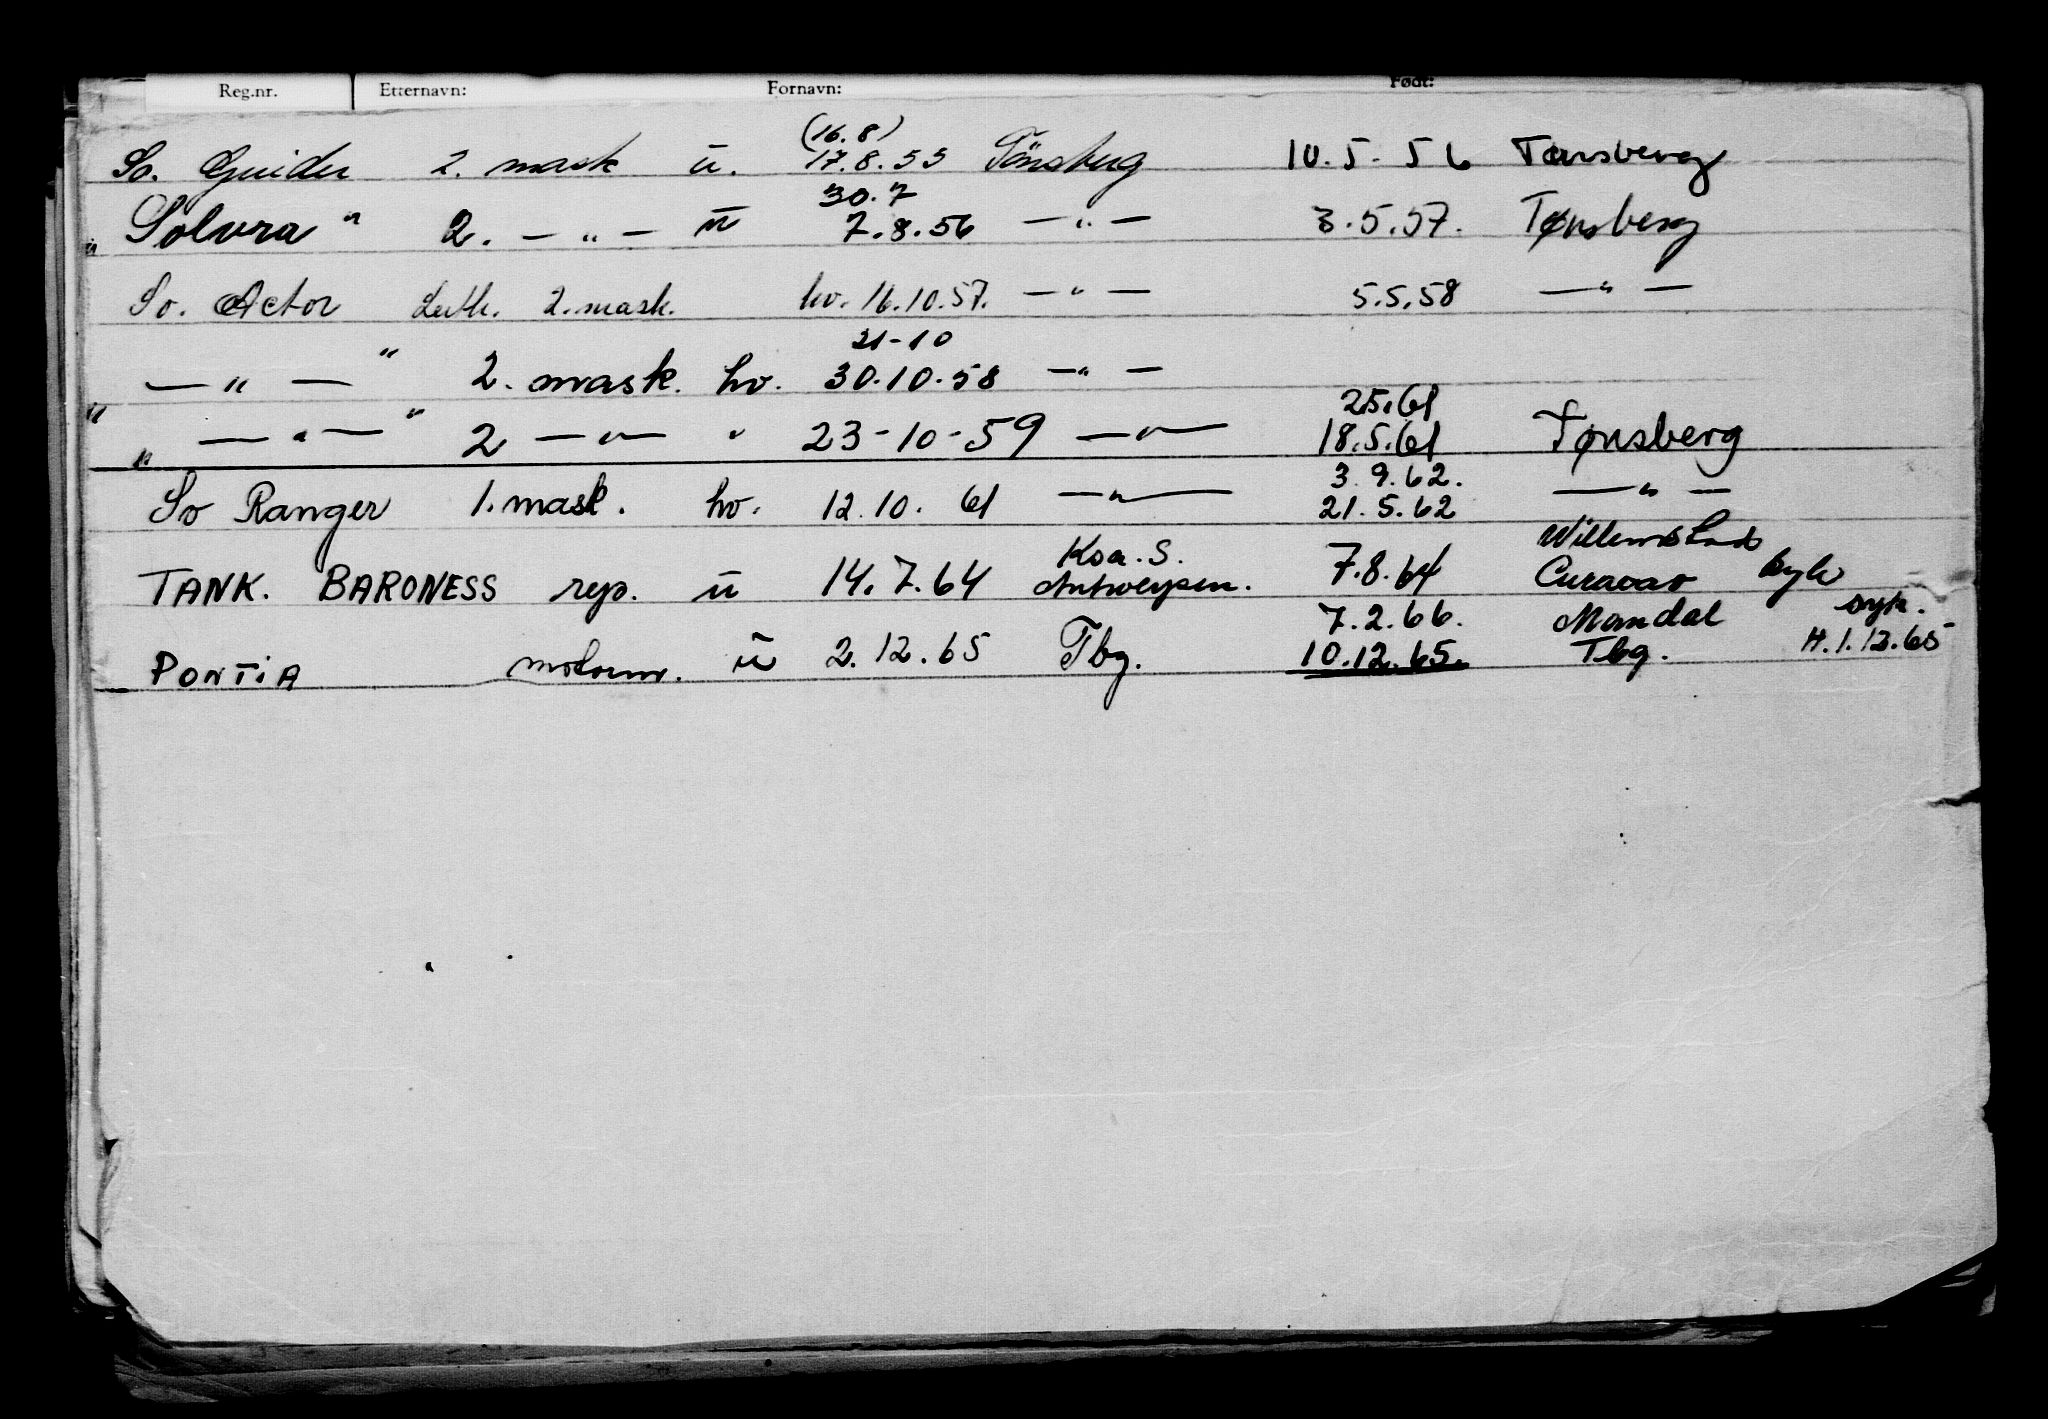 Reg.nr. Etternavn: Fornavn: Født:
(16.8)
So. Guider 2. mask u. 17.8.55 Tönsberg 10.5.56 Tønsberg
30.7
" Solvra " 2. — " — u 7.8.56 — " — 3.5.57. Tønsberg
So. Actor 2. mask. hv. 16.10.57. — " — 5.5.58 — " —
21-10
— " — " 2. mask. hv. 30.10.58 — " —
25.61
" " — " — " 2 — " — " 23-10-59 — " — 18.5.61 Tønsberg
3.9.62. — " —
So Ranger 1. mask. hv. 12.10.61 — " — 21.5.62
Koa. S. Willemstad
TANK. BARONESS rep. u 14.7.64 Antwerpen. 7.8.64 Curacao syk
7.2.66. Mandal syk.
PONTIA motorm. u 2.12.65 Tbg. 10.12.65. Tbg. H.1.12.65